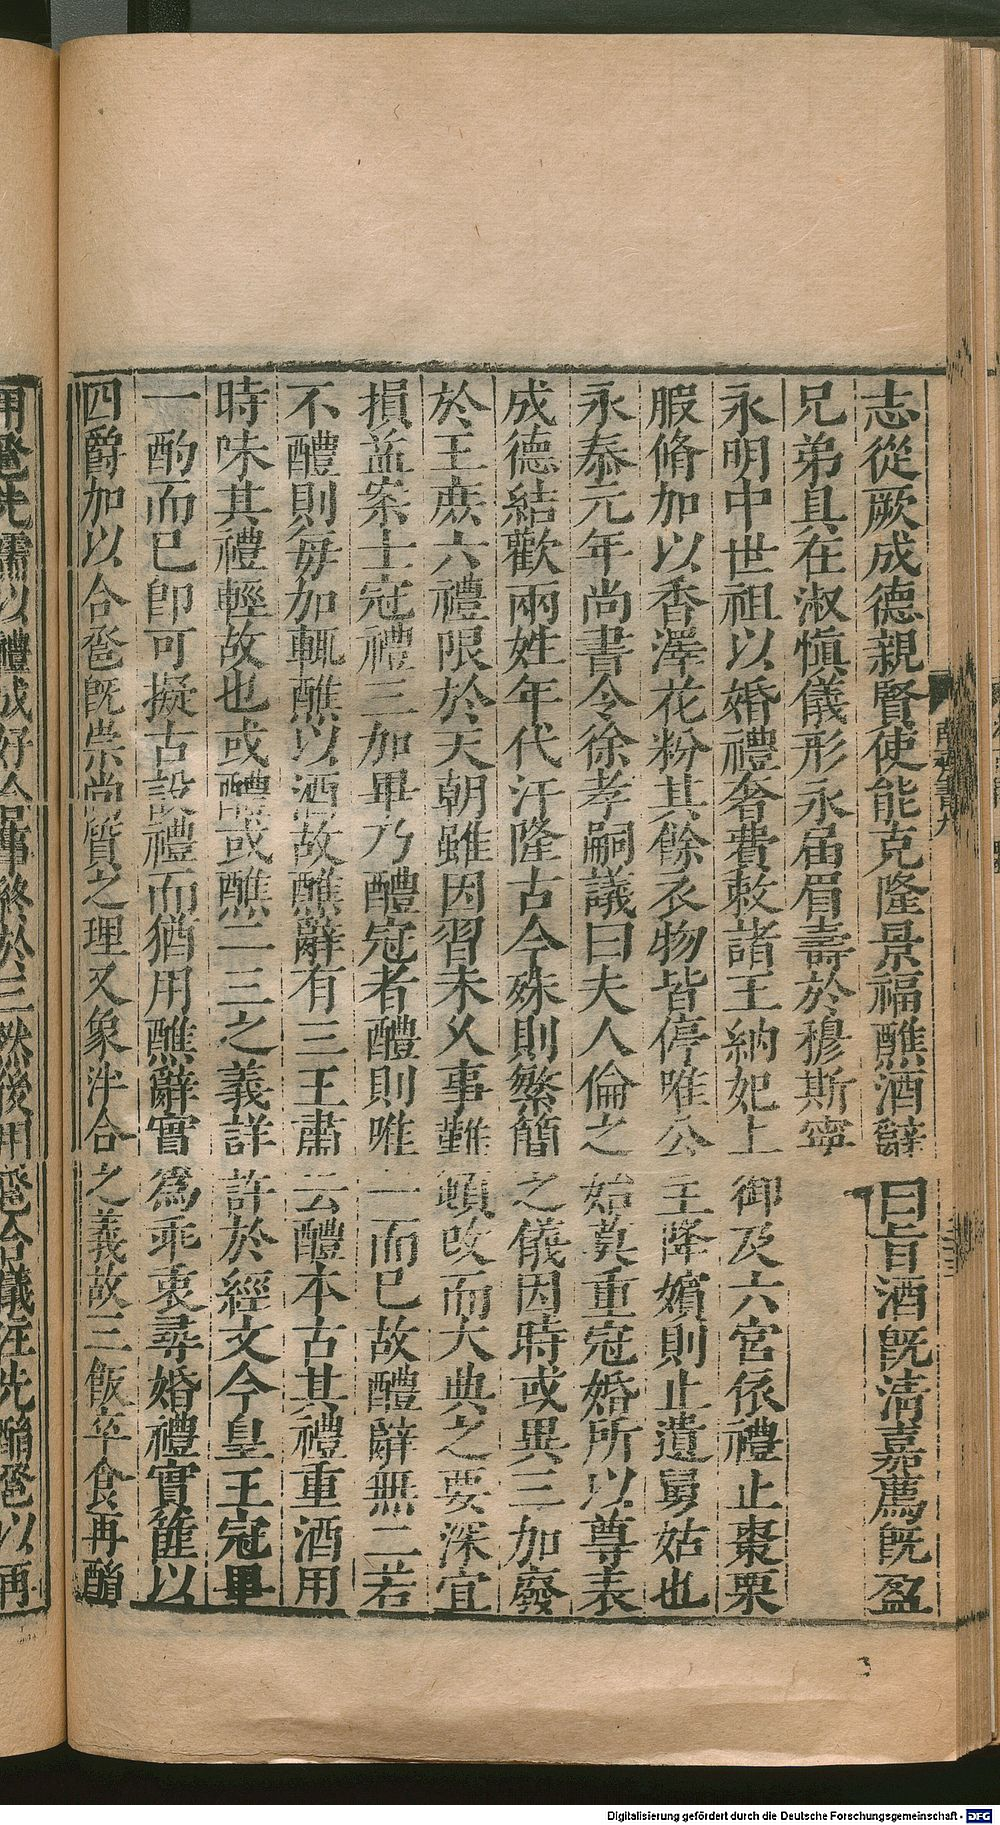 志從厥成德親賢使能克隆景福醮酒辭曰旨酒旣淸嘉薦旣盈
兄弟具在淑愼儀形永届眉壽於穆斯寧
永明中世祖以婚禮奢費敕諸王納妃上御及六宮依禮止棗栗
腶脩加以香澤花粉其餘衣物皆停唯公主降嬪則止遺舅姑也
永泰元年尚書令徐孝嗣議曰夫人倫之始莫重冠婚所以尊表
成德結歡兩姓年代汙隆古今殊則繁簡之儀因時或異三加廢
於王庶六禮限於天朝雖因習未乆事難頓改而大典之要深宜
損益案士冠禮三加畢乃醴冠者醴則唯一而已故醴辭無二若
不醴則毋加輒醮以酒故醮辭有三王肅云醴本古其禮重酒用
時味其禮輕故也或醴或醮二三之義詳許於經文今皇王冠畢
一酌而已卽可擬古設禮而猶用醮辭實爲乖衷尋婚禮實篚以
四爵加以合卺旣崇尚質之理又象泮合之義故三飯卒食再酳
用卺先儒以禮成好合事終於三然後用卺合儀注先酳卺以再
南齊書九
Digitalisierung gefördert durch die Deutsche Forschungsgemeinschaft - DFG